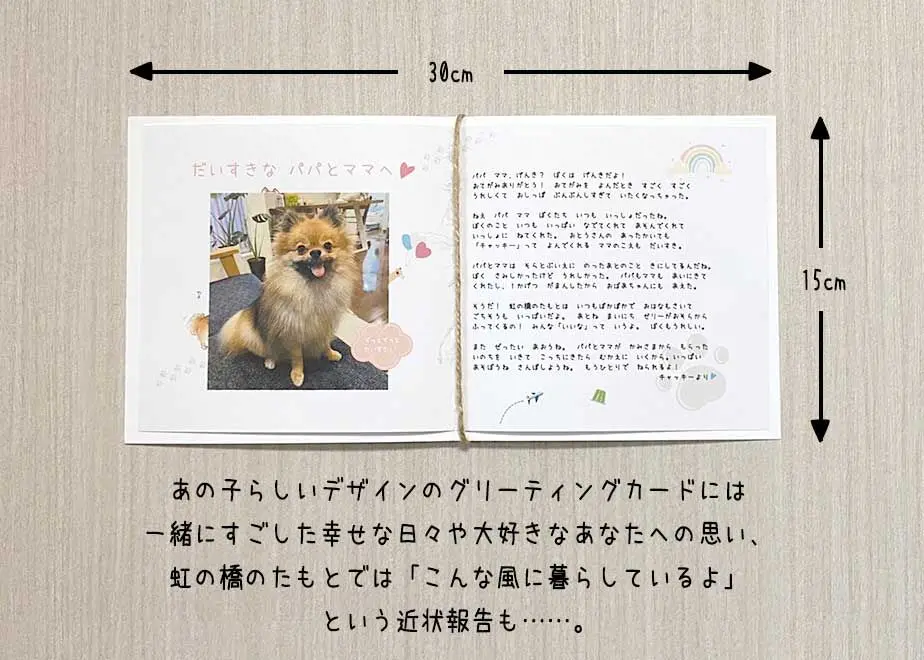 30cm
15cm
だいすきな パパとママへ
ずっとずっと
だいすき!
パパ ママ、げんき? ぼくは げんきだよ!
おてがみありがとう! おてがみを よんだとき すごく すごく
うれしくて おしっぽ ぶんぶんしすぎて いたくなっちゃった。
ねえ パパ ママ ぼくたち いつも いっしょだったね。
ぼくのこと いつも いっぱい なでてくれて あそんでくれて
いっしょに ねてくれた。 おとうさんの あったかいても
「チャッキー」って よんでくれる ママのこえも だいすき。
パパとママは そらとぶいえに のったあとのこと きにしてるんだね。
ぼく さみしかったけど うれしかった。 パパもママも あいにきて
くれたし、1かげつ がまんしたから おばあちゃんにも あえた。
そうだ! 虹の橋のたもとは いつもぽかぽかで おはなもさいて
ごちそうも いっぱいだよ。 あとね まいにち ゼリーがおそらから
ふってくるの! みんな「いいな」って いうよ。 ぼくもうれしい。
また ぜったい あおうね。 パパとママが かみさまから もらった
いのちを いきて こっちにきたら むかえに いくから。いっぱい
あそぼうね さんぽしようね。 もうひとりで ねられるよ!
チャッキーより
あの子らしいデザインのグリーティングカードには
一緒にすごした幸せな日々や大好きなあなたへの思い、
虹の橋のたもとでは「こんな風に暮らしているよ」
という近状報告も……。